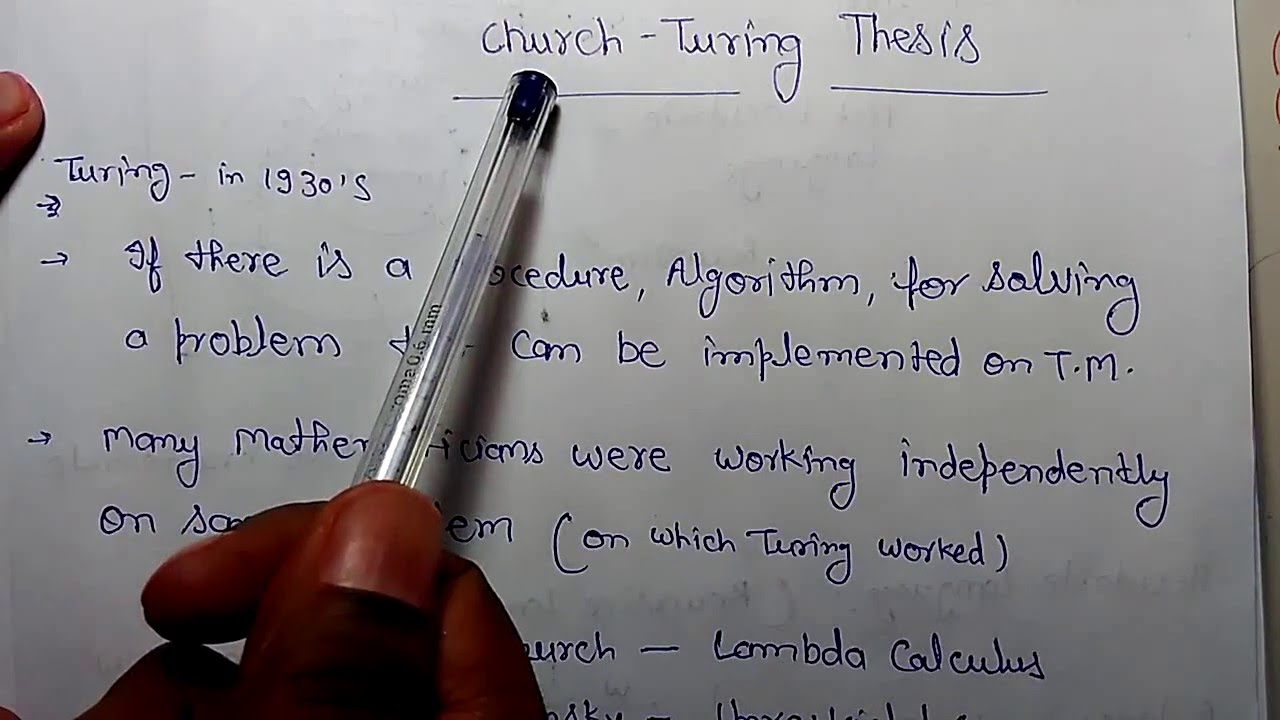 Church - Turing Thesis
Turing - in 1930's
→ If there is a procedure, Algorithm, for solving
a problem can be implemented on T.M.
→ Many Mathematicians were working independently
on (on which Turing worked)
Church — Lambda Calculus